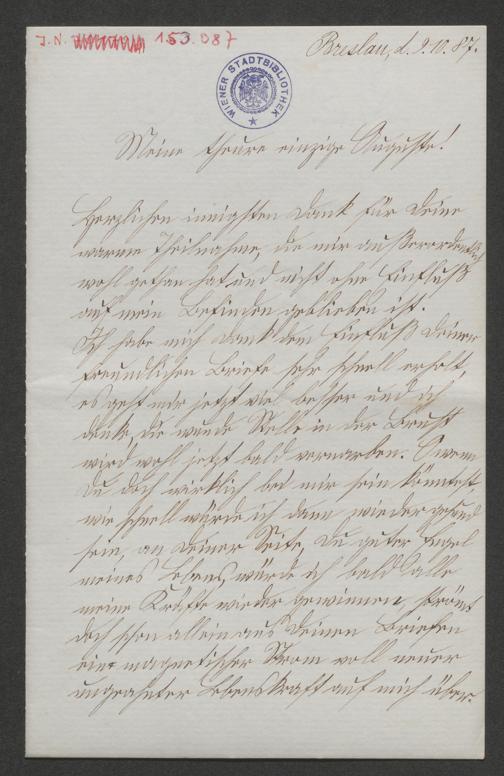 J. N. 153.087
Breslau, d. 9.10.87.
WIENER STADTBIBLIOTHEK
Meine theure einzige Auguste!
Herzlichen innigsten Dank für Deine
warme Theilnahme, die mir außerordentlich
wohl gethan hat und nicht ohne Einfluß
auf mein Befinden geblieben ist.
Ich habe mich Dank dem Einfluß Deiner
freundlichen Briefe sehr schnell erholt,
es geht mir jetzt viel besser und ich
denke, die wunde Stelle in der Brust
wird wohl jetzt bald vernarben. O wenn
Du doch wirklich bei mir sein könntest
wie schnell würde ich dann wieder gesund
sein, an Deiner Seite, Du guter Engel
meines Lebens, würde ich bald alle
meine Kräfte wieder gewinnen, strömt
doch schon allein aus Deinen Briefen
ein magnetischer Strom voll neuer
ungeahnter Lebenskraft auf mich über.